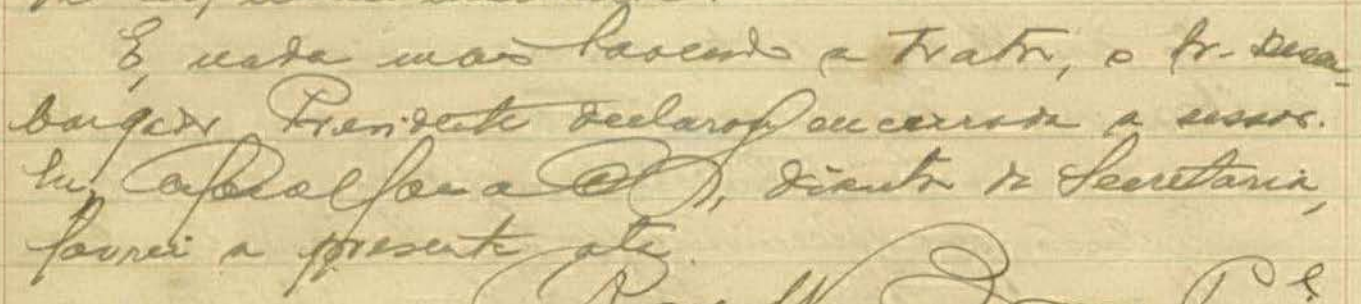 E, nada mais havendo a tratar, o Sr. Desem-
bargador Presidente declarou encerrada a sessão.
Eu, diretor da Secretaria,
lavrei a presente ata.